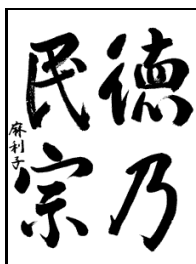 徳乃
民宗
麻利子